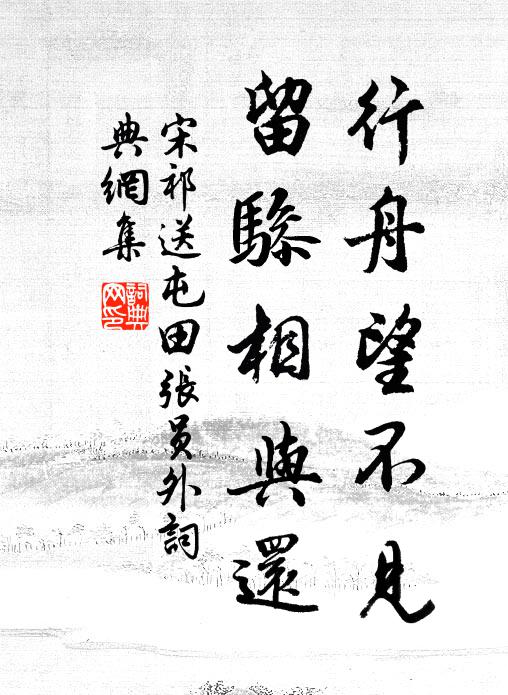 行舟望不見
留驂相與還
宋祁送屯田張員外詞
典網集
詞典
网印